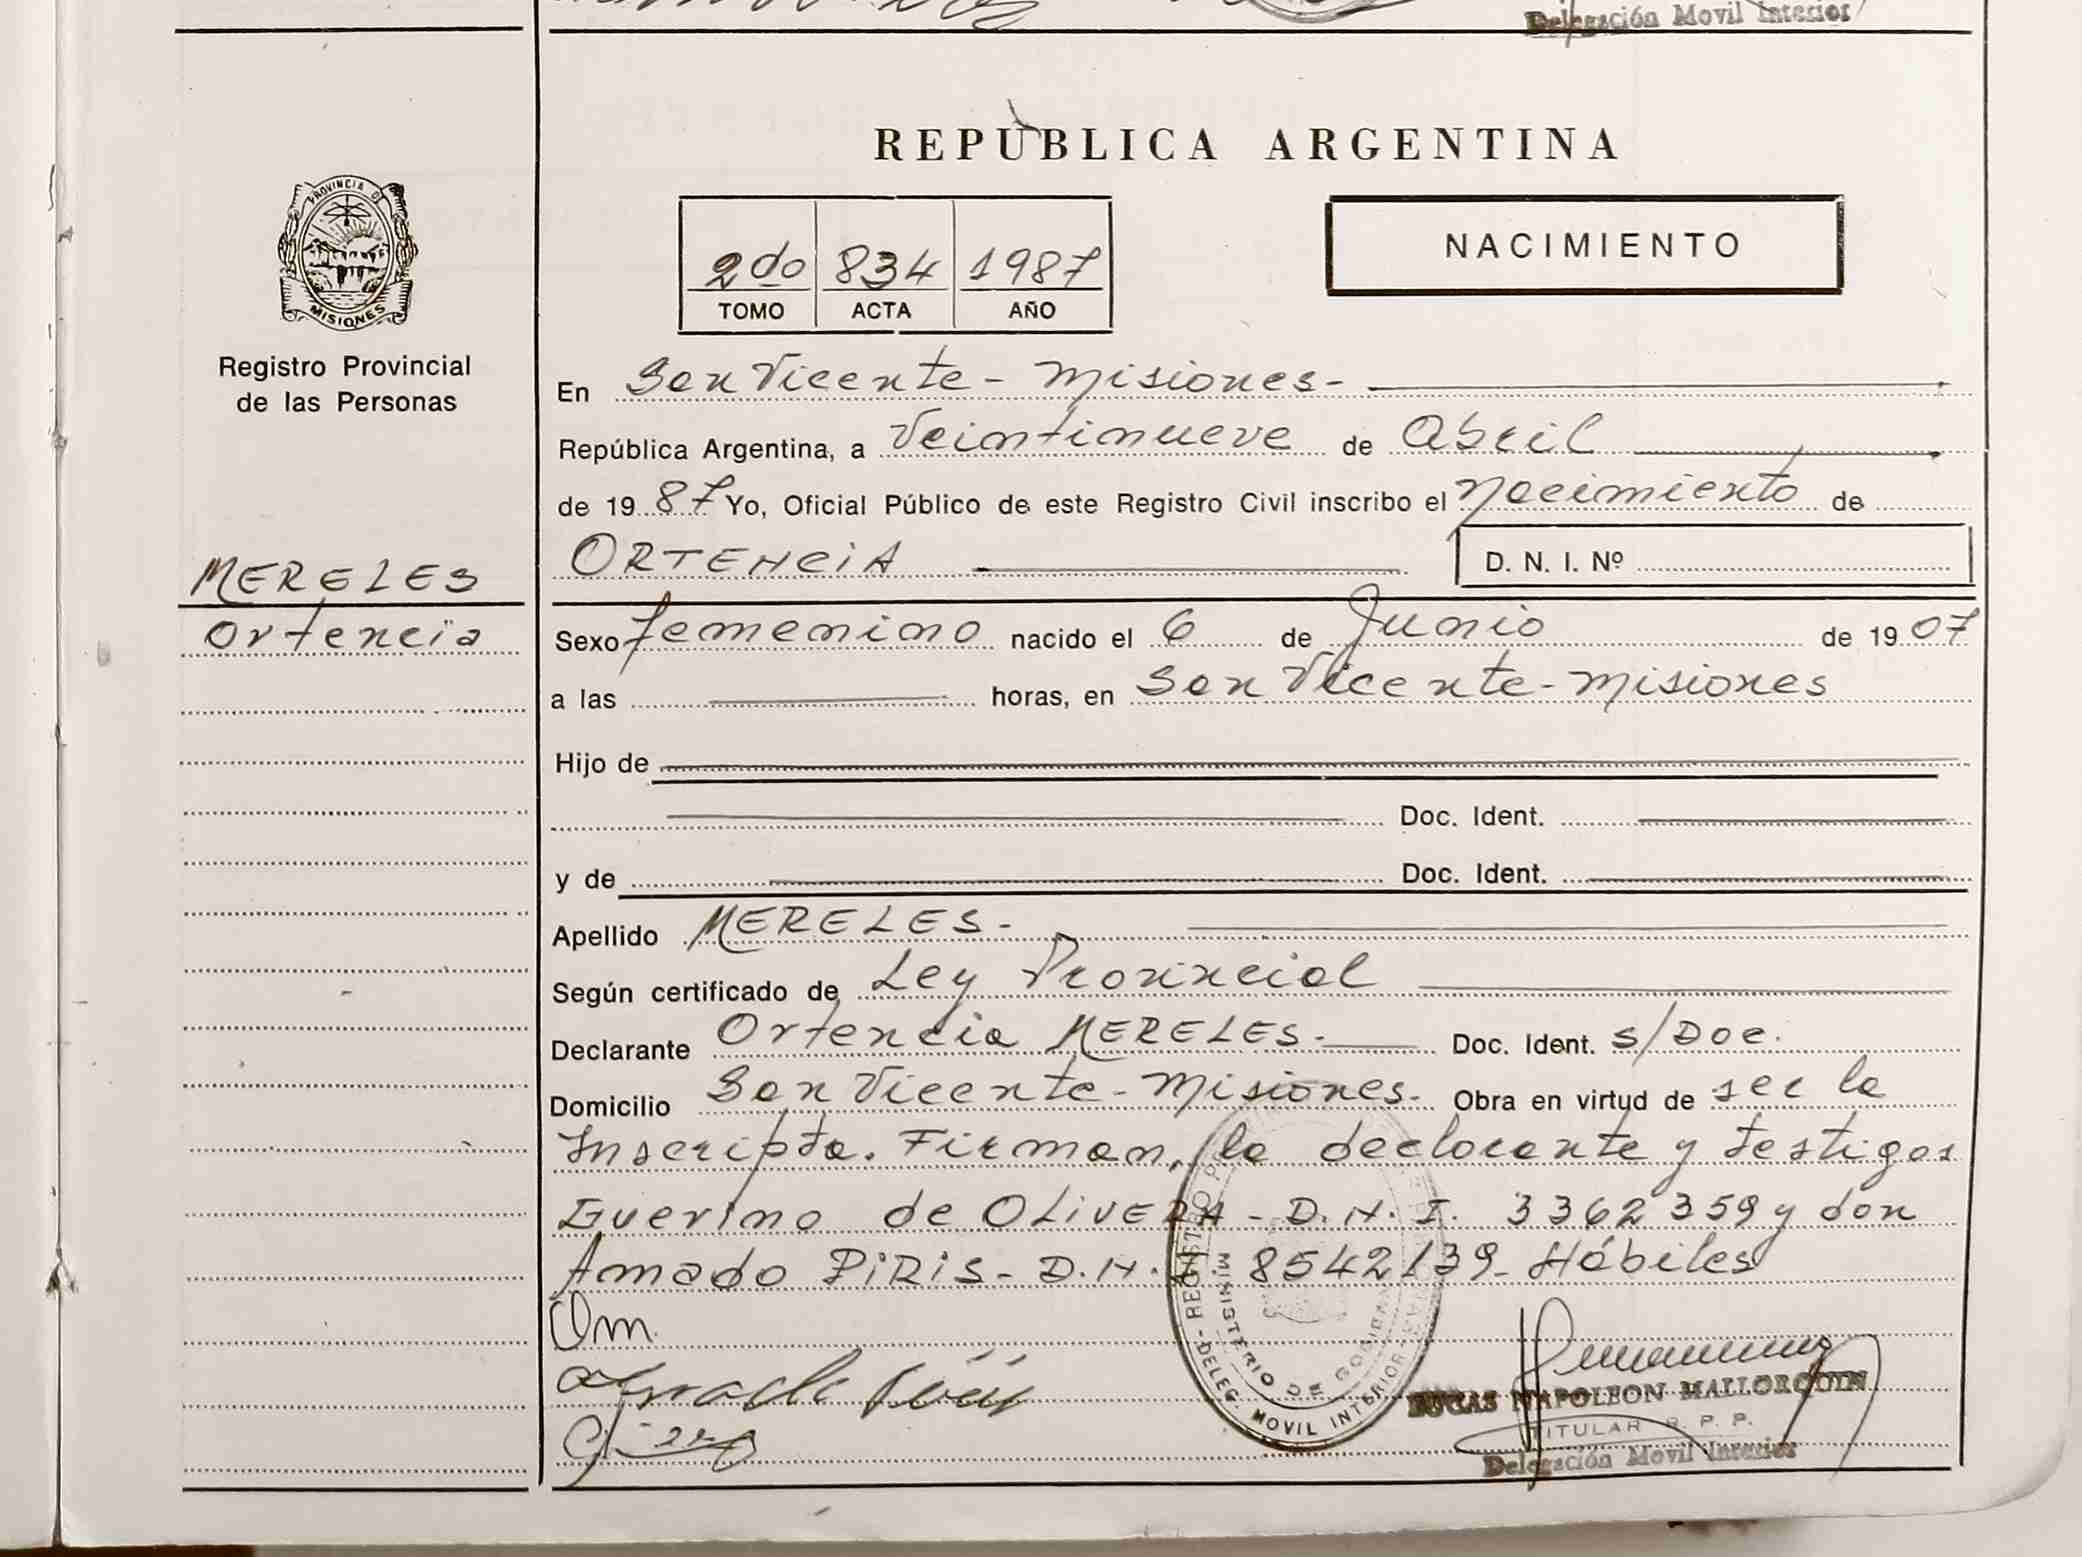 Delegación Movil Interior
REPÙBLICA ARGENTINA
PROVINCIA DE
MISIONES
Registro Provincial
de las Personas
2do 834 1987
TOMO ACTA AÑO
NACIMIENTO
En San Vicente - Misiones-
República Argentina, a Veintinueve de Abril
de 1987 Yo, Oficial Público de este Registro Civil inscribo el Nacimiento de
ORTENCiA D. N. I. Nº
MERELES
Ortencia
Sexo femenino nacido el 6 de Junio de 1907
a las horas, en San Vicente - Misiones
Hijo de
Doc. Ident.
y de Doc. Ident.
Apellido MERELES-
Según certificado de Ley Provincial
Declarante Ortencia MERELES- Doc. Ident. S/Doc.
Domicilio San Vicente - Misiones- Obra en virtud de ser la
Inscripta. Firman, la declarante y testigos
Guerino de OLIVERA - D.N.I. 3362359 y don
Amado PIRIS - D.N. 8542139- Hábiles
Om.
LUCAS NAPOLEON MALLORQUIN
TITULAR R. P. P.
Delegación Movil Interior
MINISTERIO DE GOBIERNO
DELEG. MOVIL INTERIOR